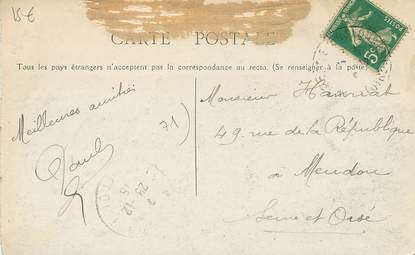 15 €
CARTE POSTALE
Tous les pays étrangers n'acceptent pas la correspondance au recto. (Se renseigner à la poste)
Meilleures amitiés
71
Monsieur
49 rue de la République
à Meudon
Seine et Oise